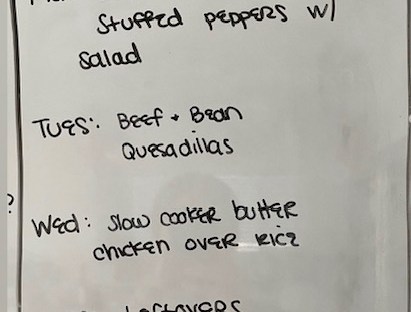 Stuffed peppers w/
salad
Tues: Beef + Bean
Quesadillas
?
Wed: slow cooker butter
chicken over rice
leftovers